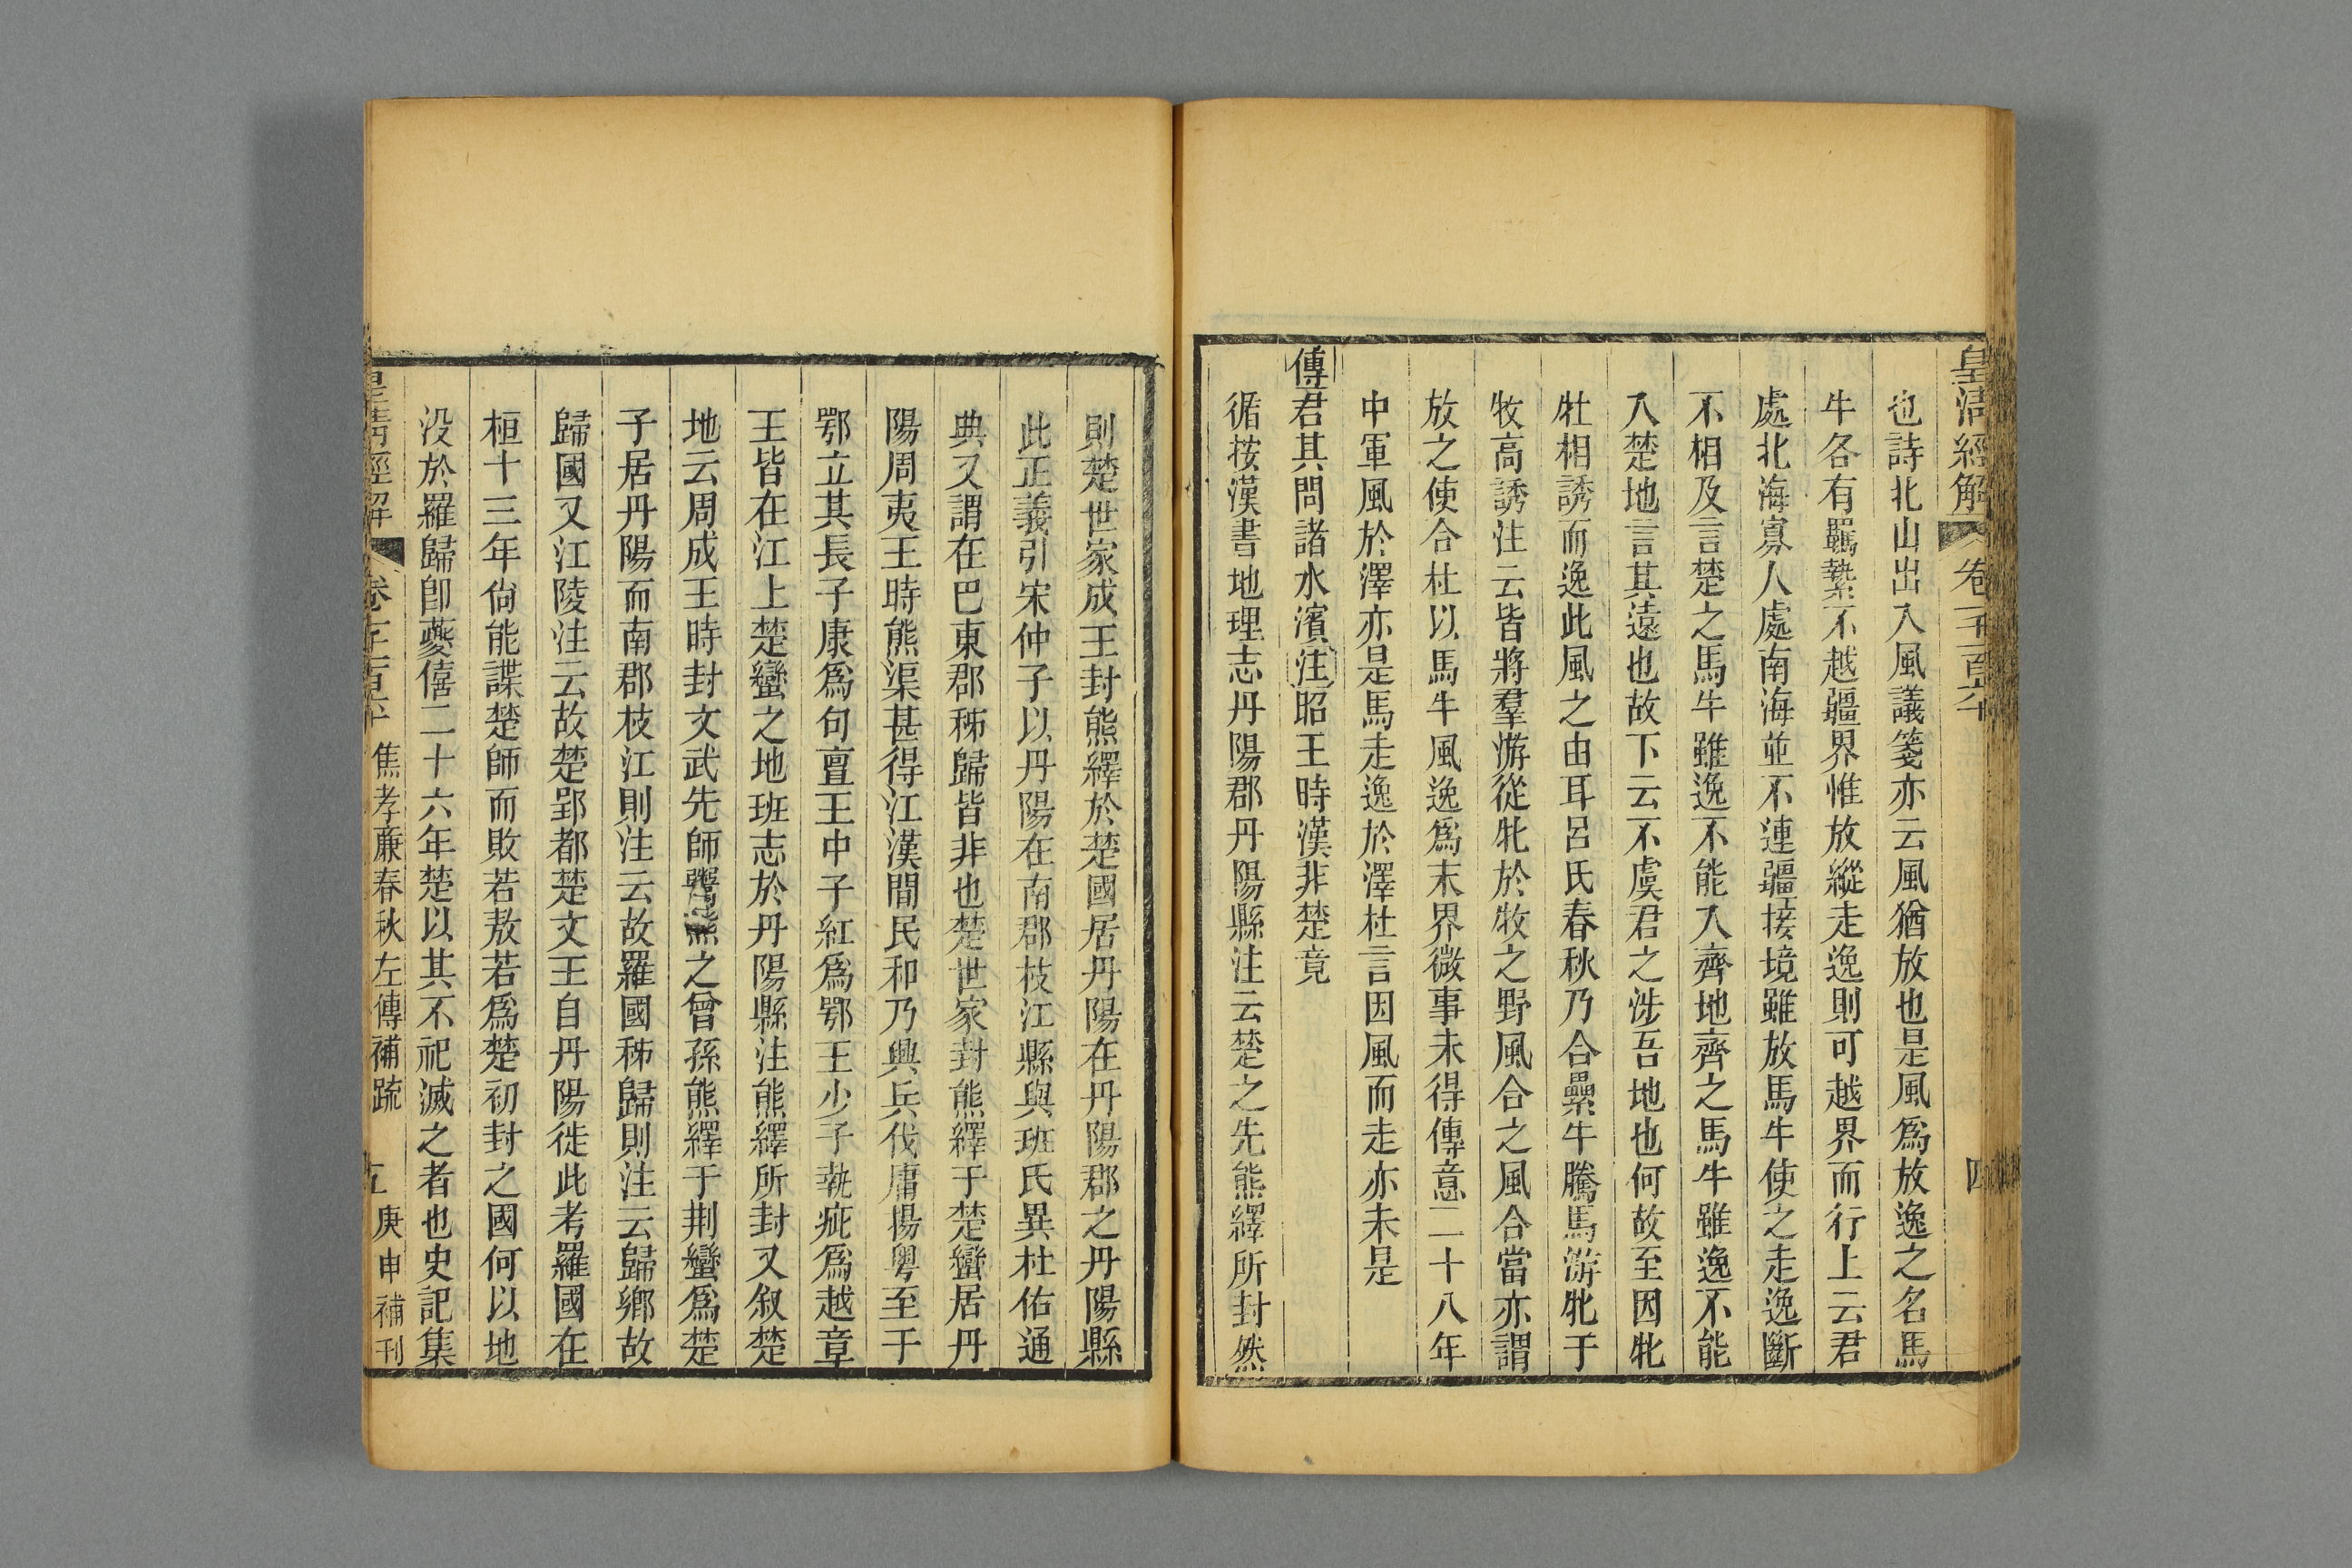 皇清經解 卷一千一百六十 四
也詩北山出入風議箋亦云風猶放也是風爲放逸之名馬
牛各有羈縶不越疆界惟放縱走逸則可越界而行上云君
處北海寡人處南海並不連疆接境雖放馬牛使之走逸斷
不相及言楚之馬牛雖逸不能入齊地齊之馬牛雖逸不能
入楚地言其遠也故下云不虞君之涉吾地也何故至因牝
牡相誘而逸此風之由耳呂氏春秋乃合㬥牛騰馬游牝于
牧高誘注云皆將羣游從牝於牧之野風合之風合當亦謂
放之使合杜以馬牛風逸爲末界微事未得傳意二十八年
中軍風於澤亦是馬走逸於澤杜言因風而走亦未是
傳君其問諸水濱注昭王時漢非楚竟
循按漢書地理志丹陽郡丹陽縣注云楚之先熊繹所封然
則楚世家成王封熊繹於楚國居丹陽在丹陽郡之丹陽縣
此正義引宋仲子以丹陽在南郡枝江縣與班氏異杜佑通
典又謂在巴東郡秭歸皆非也楚世家封熊繹于楚蠻居丹
陽周夷王時熊渠甚得江漢間民和乃興兵伐庸揚粵至于
鄂立其長子康爲句亶王中子紅爲鄂王少子執疵爲越章
王皆在江上楚蠻之地班志於丹陽縣注熊繹所封又叙楚
地云周成王時封文武先師鬻熊之曾孫熊繹于荆蠻爲楚
子居丹陽而南郡枝江則注云故羅國秭歸則注云歸鄉故
歸國又江陵注云故楚郢都楚文王自丹陽徙此考羅國在
桓十三年尙能諜楚師而敗若敖若爲楚初封之國何以地
没於羅歸卽夔僖二十六年楚以其不祀滅之者也史記集
皇清經解 卷一千一百六十 焦孝廉春秋左傳補疏 五 庚申補刊